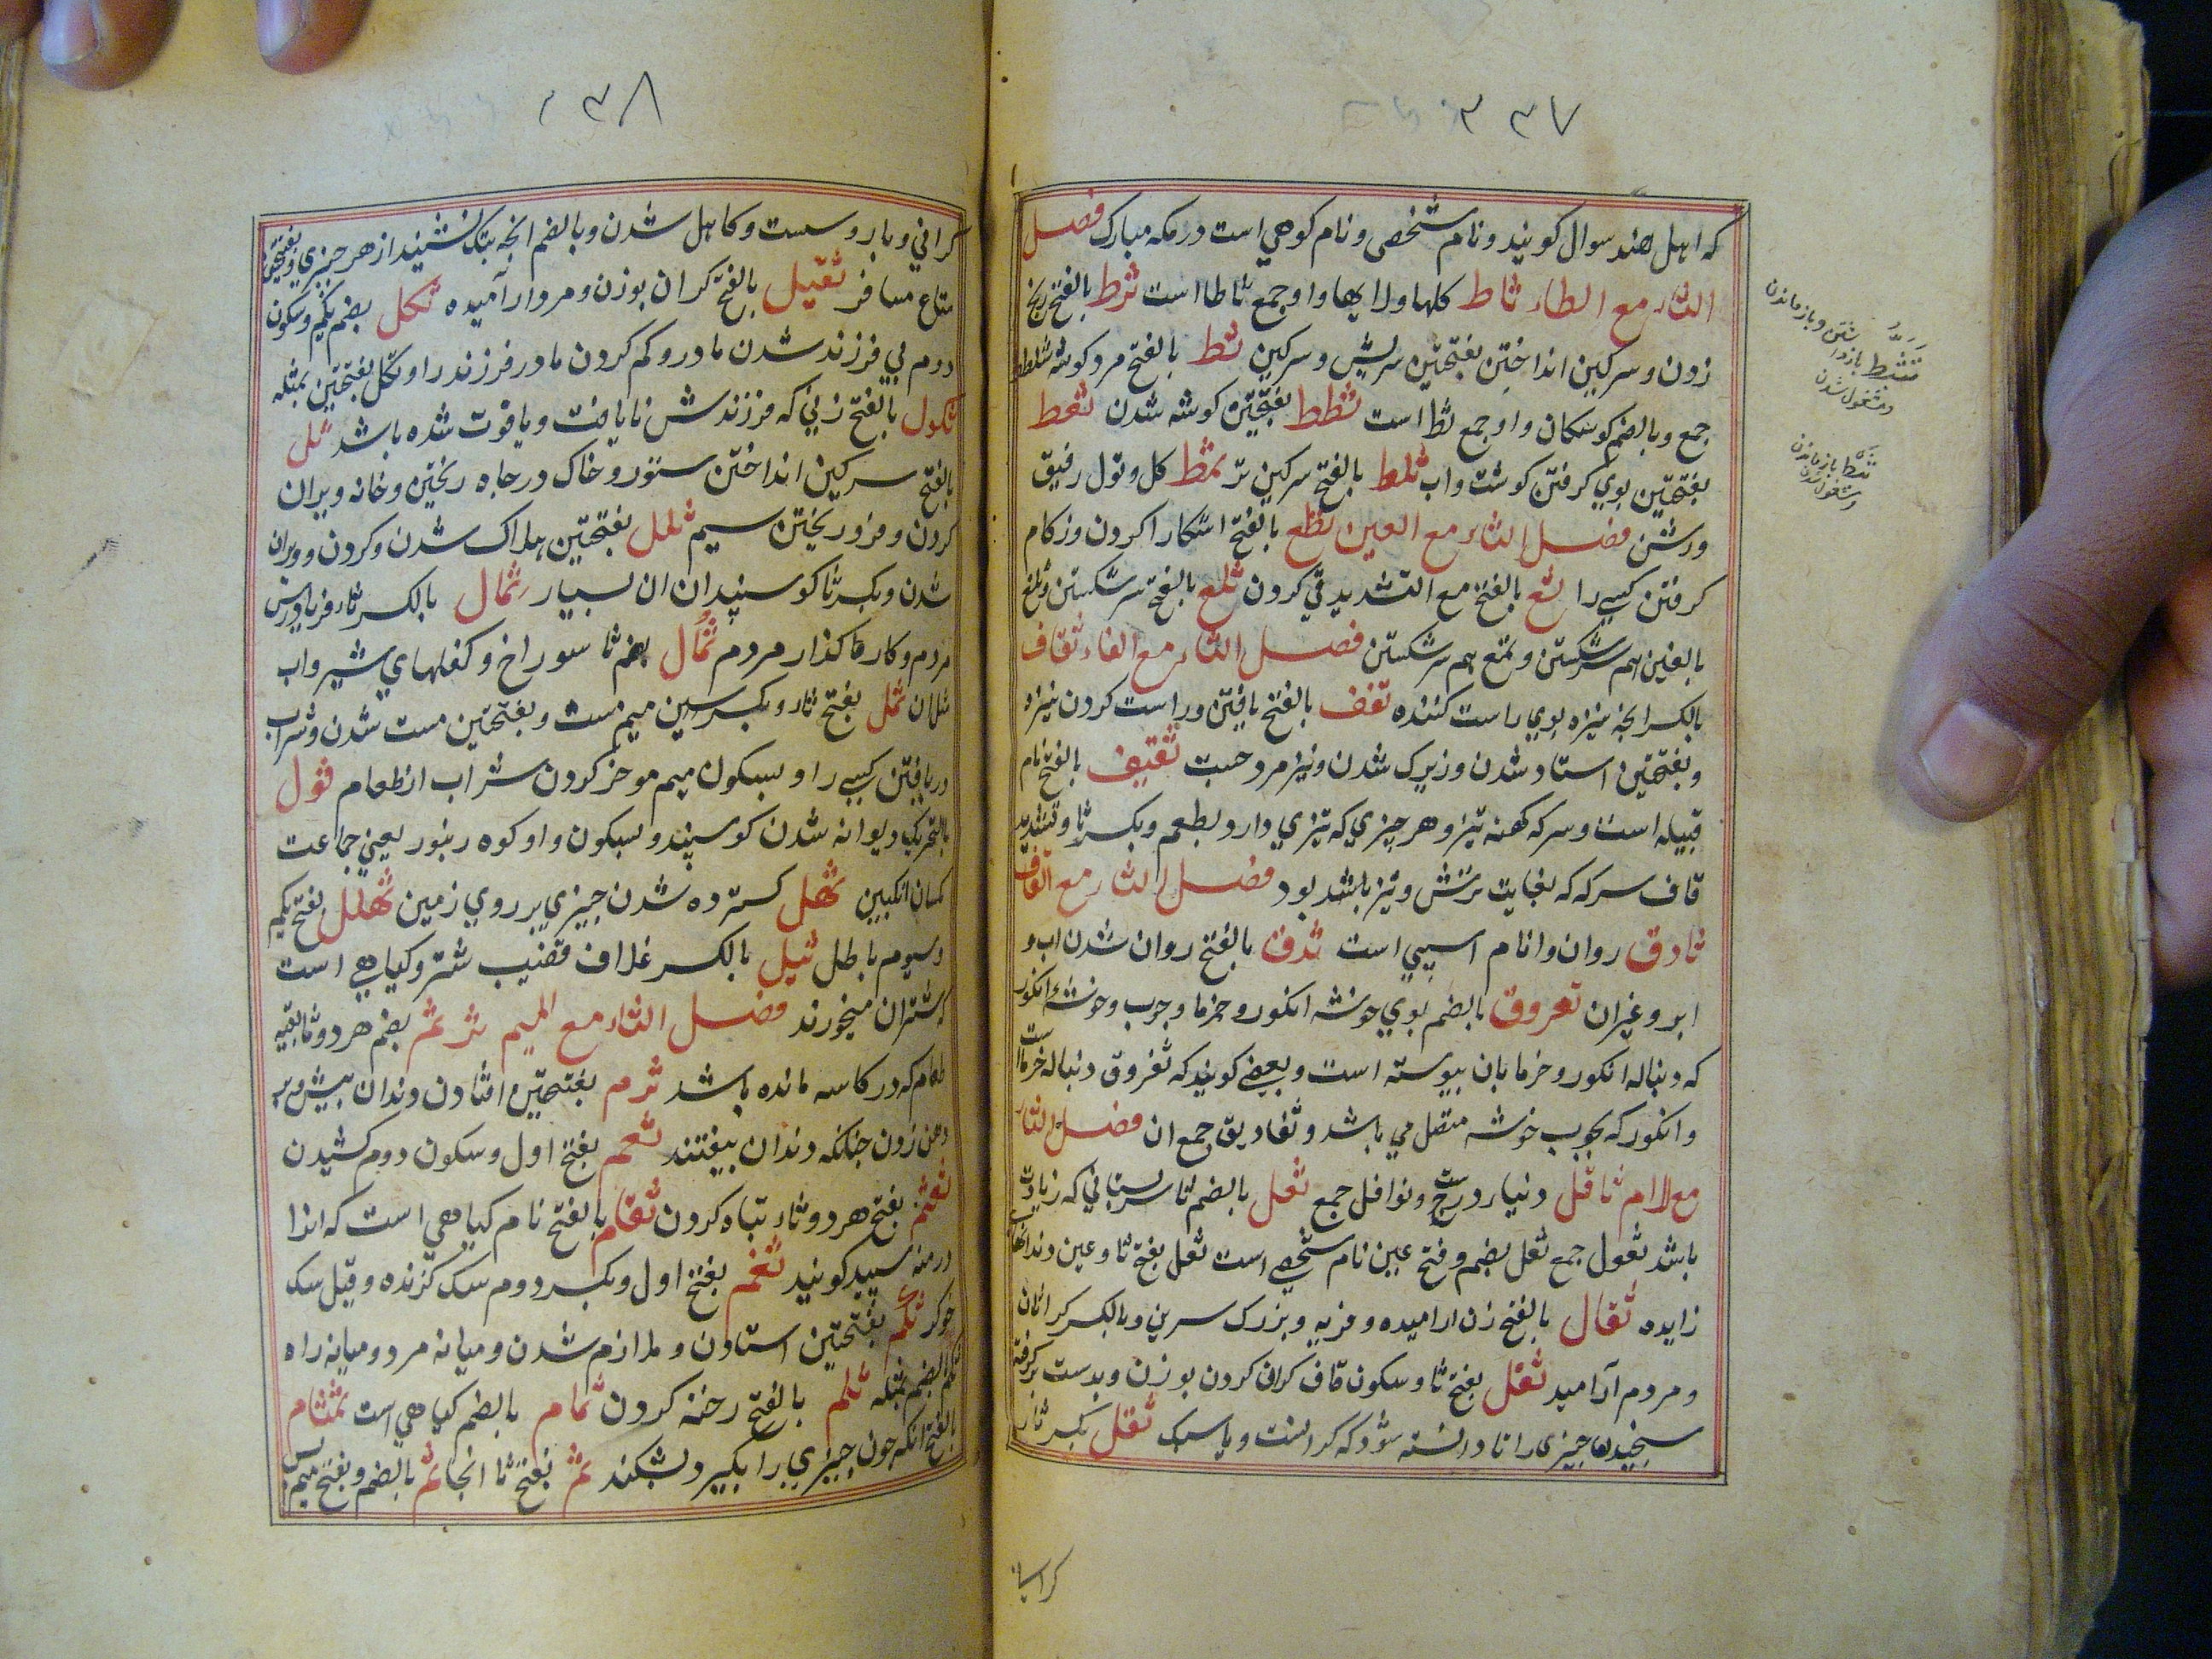 ۳۳۷
که اهل هند سوال کویند و نام شخصی و نام کوهی است در مکه مبارک فصل
الثاء مع الطاء ثاط کلها و لایها و او جمع ثاطا است ثرط بالفتح
زدن و سرکین انداختن بفتحتین سریش و سرکین ثط بالفتح مرد کوسه
جمع و بالضم کوسکان و او جمع ثط است ثطط بفتحتین کوسه شدن ثعط
بفتحتین بوی کرفتن کوشت و اب ثلط بالفتح سرکین تر ثمط کل و تول رقیق
فصل الثاء مع العین ثطع بالفتح اشکارا کردن و زکام
کرفتن کسی را ثع بالفتح مع التشدید قی کردن ثلع بالفتح سر شکستن و ثلغ
بالغین هم سر شکستن و ثمغ هم سر شکستن فصل الثاء مع الفاء ثقاف
بالکسر انچه نیزه بوی راست کننده ثقف بالفتح یافتن و راست کردن نیزه
و بفتحتین استاد شدن و زیرک شدن و نیز مرد چست ثقیف بالفتح نام
قبیله است و سرکه کهنه تیز و هر چیزی که تیزی دارد بطعم و بکسر ثا و تشدید
قاف سرکه که بغایت ترش و تیز باشد بود فصل الثاء مع القاف
ثادق روان و انام اسپی است ثدق بالفتح روان شدن اب و
ابر و غیران ثعروق بالضم بوی خوشه انکور و خرما و چوب و خوشهٔ انکور
که دنباله انکور و خرما بان پیوسته است و بعضی کویند که ثفروق دنباله خرماست
و انکور که بچوب خوشه متصل می باشد و ثفاریق جمع ان فصل الثاء
مع لام ثاقل دینار درست و نوافل جمع ثعل بالضم ثا سر پستانی که زیادت
باشد ثعول جمع ثعل بضم و فتح عین نام شخصی است ثعل بفتح ثا و عین دندانها
زایده ثقال بالفتح زن ارامیده و فربه و بزرک سرین و بالکسر کرانان
و مردم آرامید ثقل بفتح ثا و سکون قاف کران کردن بوزن و بدست کرفته
سنجیدن چیزی را تا دانسته شود که کرانست و یا سبک ثقل بکسر ثاء
کرانی
۳۳۸
کرانی و بار و سست و کاهل شدن و بالضم انچه بتک نشیند از هر چیزی و بفتحتین
متاع مسافر ثقیل بالفتح کران بوزن و مرد آرامیده ثکل بضم یکم و سکون
دوم بی فرزند شدن مادر و کم کردن مادر فرزند را و ثکل بفتحتین بمثله
ثکول بالفتح زنی که فرزندش نایافت و یا فوت شده باشد ثل
بالفتح سرکین انداختن ستور و خاک در چاه ریختن و خانه ویران
کردن و فرو ریختن سیم ثلل بفتحتین هلاک شدن و کردن و ویران
شدن و بکسر ثا کوسپندان ان بسیار ثمال بالکسر ثاء فریادرس
مردم و کارها کذار مردم ثمال بضم ثا سوراخ و کفلهای شیر و اب
ثمل بفتح ثاء و بکسر سین میم مست و بفتحتین مست شدن و شراب
دریافتن کسی را و بسکون میم موخر کردن شراب از طعام ثول
بالتحریک دیوانه شدن کوسپند و بسکون واو کوه زنبور یعنی جماعت
مکسان انکبین ثهل کسترده شدن چیزی بر روی زمین ثهلل بفتح یکم
و سیوم باطل ثیل بالکسر غلاف قضیب شتر و کیاهی است
اشتران میخورند فصل الثاء مع المیم ثرثم بضم هر دو ثا بقیه
طعام که در کاسه مانده باشد ثرم بفتحتین افتادن دندان پیش و بر
دهن زدن چنانکه دندان بیفتند ثعم بفتح اول و سکون دوم کشیدن
ثعثم بفتح هر دو ثاء تباه کردن ثغام بالفتح نام کیاهی است که انرا
درمنه سپید کویند ثغم بفتح اول و بکسر دوم سک کزنده و قیل سک
خوکر ثکم بفتحتین استادن و ملازم شدن و میانه مرد و میانه راه
ثکم بالضم بمثله ثلم بالفتح رخنه کردن ثمام بالضم کیاهی است ثمثام
بالفتح انکه چون چیزی را بکیرد بشکند ثم بفتح ثا انجا ثم بالضم و بفتح میم پس